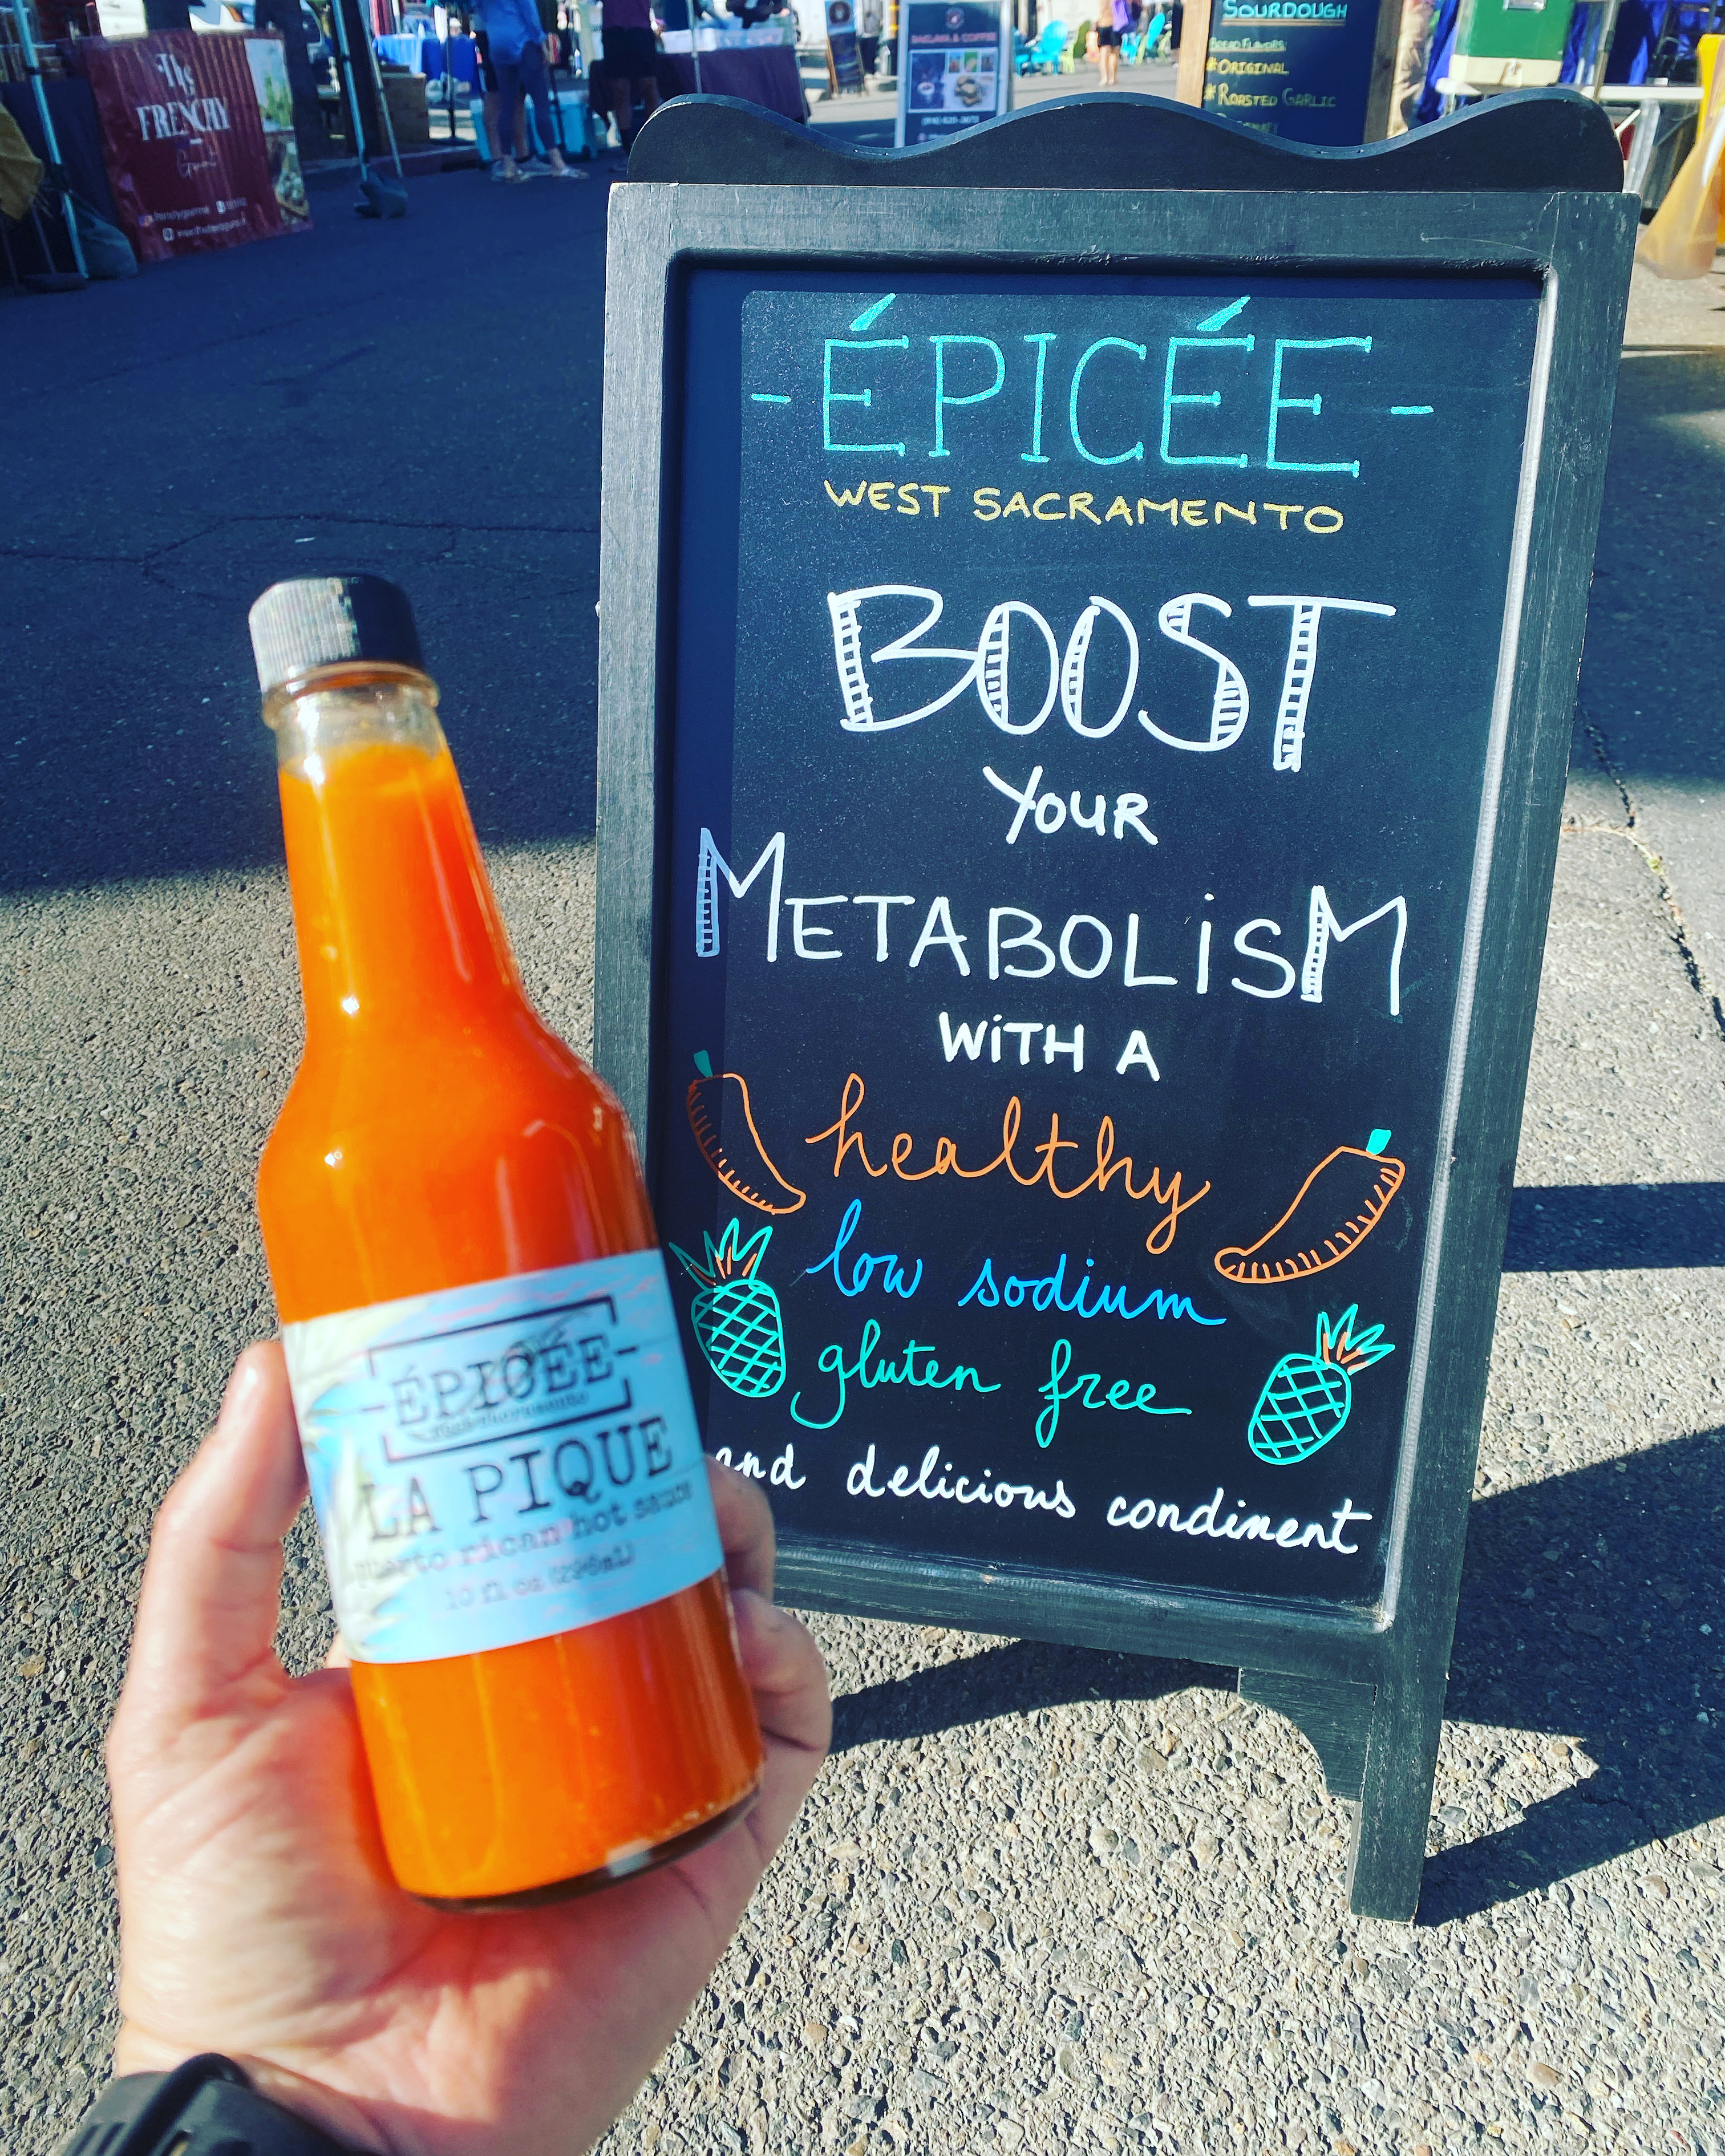 The
FRENCHY
SOURDOUGH
BREAD FLAVORS:
*ORIGINAL
*ROASTED GARLIC
BAKLAVA & COFFEE
-ÉPICÉE-
WEST SACRAMENTO
BOOST
YOUR
METABOLiSM
WiTH A
healthy
low sodium
gluten free
and delicious condiment
-ÉPICÉE-
LA PIQUE
puerto rican hot sauce
10 fl oz (296ml)